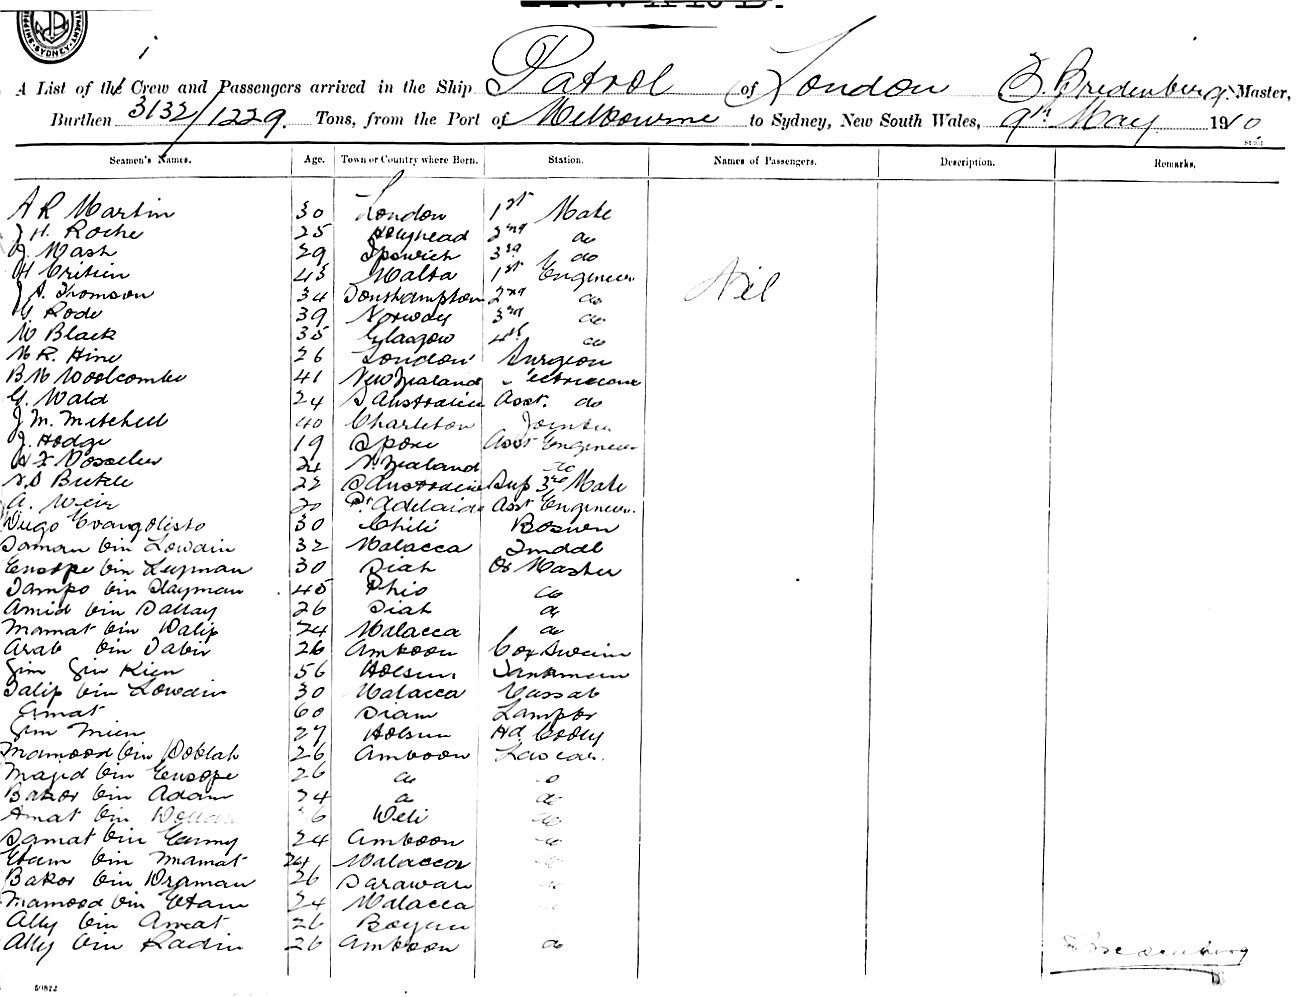 SYDNEY
A List of the Crew and Passengers arrived in the Ship Patrol of London Bredenberg Master,
Burthen 3132/1229. Tons, from the Port of Melbourne to Sydney, New South Wales, 9th May 1910
Seamen's Names. Age. Town or Country where Born. Station. Names of Passengers. Description. Remarks.
A R Martin 30 London 1st Mate
J H. Roche 25 Holyhead 2nd do
J. Mash 29 Ipswich 3rd do
H Critien 43 Malta 1st Engineer
Nil
J A. Thomson 34 Southampton 2nd do
G. Rode 39 Norway 3rd do
W Black 35 Glasgow 4th do
R. Hine 26 London Surgeon
B M Woolcombe 41 New Zealand
G. Wald 24 S Australia Asst. do
J M. Mitchell 40 Charleton Jointer
J. Hodge 19 Spore Asst Engineer
24 N. Zealand do
22 S Australia Sup 3rd Mate
A. Weir 20 Pt Adelaide Asst Engineer.
Hugo Evangelisto 30 Chili Bosun
Saman bin Lowdin 32 Malacca Tindal
Eusope bin Leyman 30 Siak Qr Master
Tampo bin Slayman 45 Rhio do
Amid bin Sallay 26 Siak do
Mamat bin Walip 24 Malacca do
Arab bin Tabir 26 Amboon Coxswain
56
Talip bin Lowdin 30 Malacca Cassab
Amat 60 Siam Lamptr
27
Mamood bin Doblah 26 Amboon Lascar.
Majid bin Eusope 26 do do
Bakor bin Adam 24 do do
Amat bin 26 Deli do
Samat bin 24 Amboon do
Etam bin Mamat 24 Malacca
Bakor bin Draman 26 Sarawak
Mamood bin Etam 24 Malacca
Ally bin Amat 26 Boyan
Ally bin Radin 26 Amboon do
Bredenberg